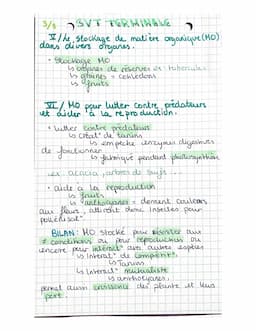 3/3 SVT TERMINALE
V/ Le stockage de matière organique (MO)
dans divers organes.
• Stockage MO
↳ organes de réserves ex: tubercules
↳ graines = cotylédons
↳ fruits
VI/ MO pour lutter contre prédateurs
et aider à la reproduction.
• lutter contre prédateurs
↳ Créat° de tanins
↳ empêche enzymes digestives
de fonctionner
↳ fabriqué pendant photosynthèse
ex: acacia, arbres de
• aide à la reproduction
↳ fruits
↳ anthocyanes = donnent couleurs
aux fleurs, attirent donc insectes pour
pollenisat°
BILAN: MO stocké pour résister aux
≠ conditions ou pour reproduction ou
encore pour interat° avec autres espèces
↳ Interat° de compétit°
↳ Tanins
↳ Interat° mutualiste
↳ anthocyanes.
permet aussi croissance des plante et leur
port.